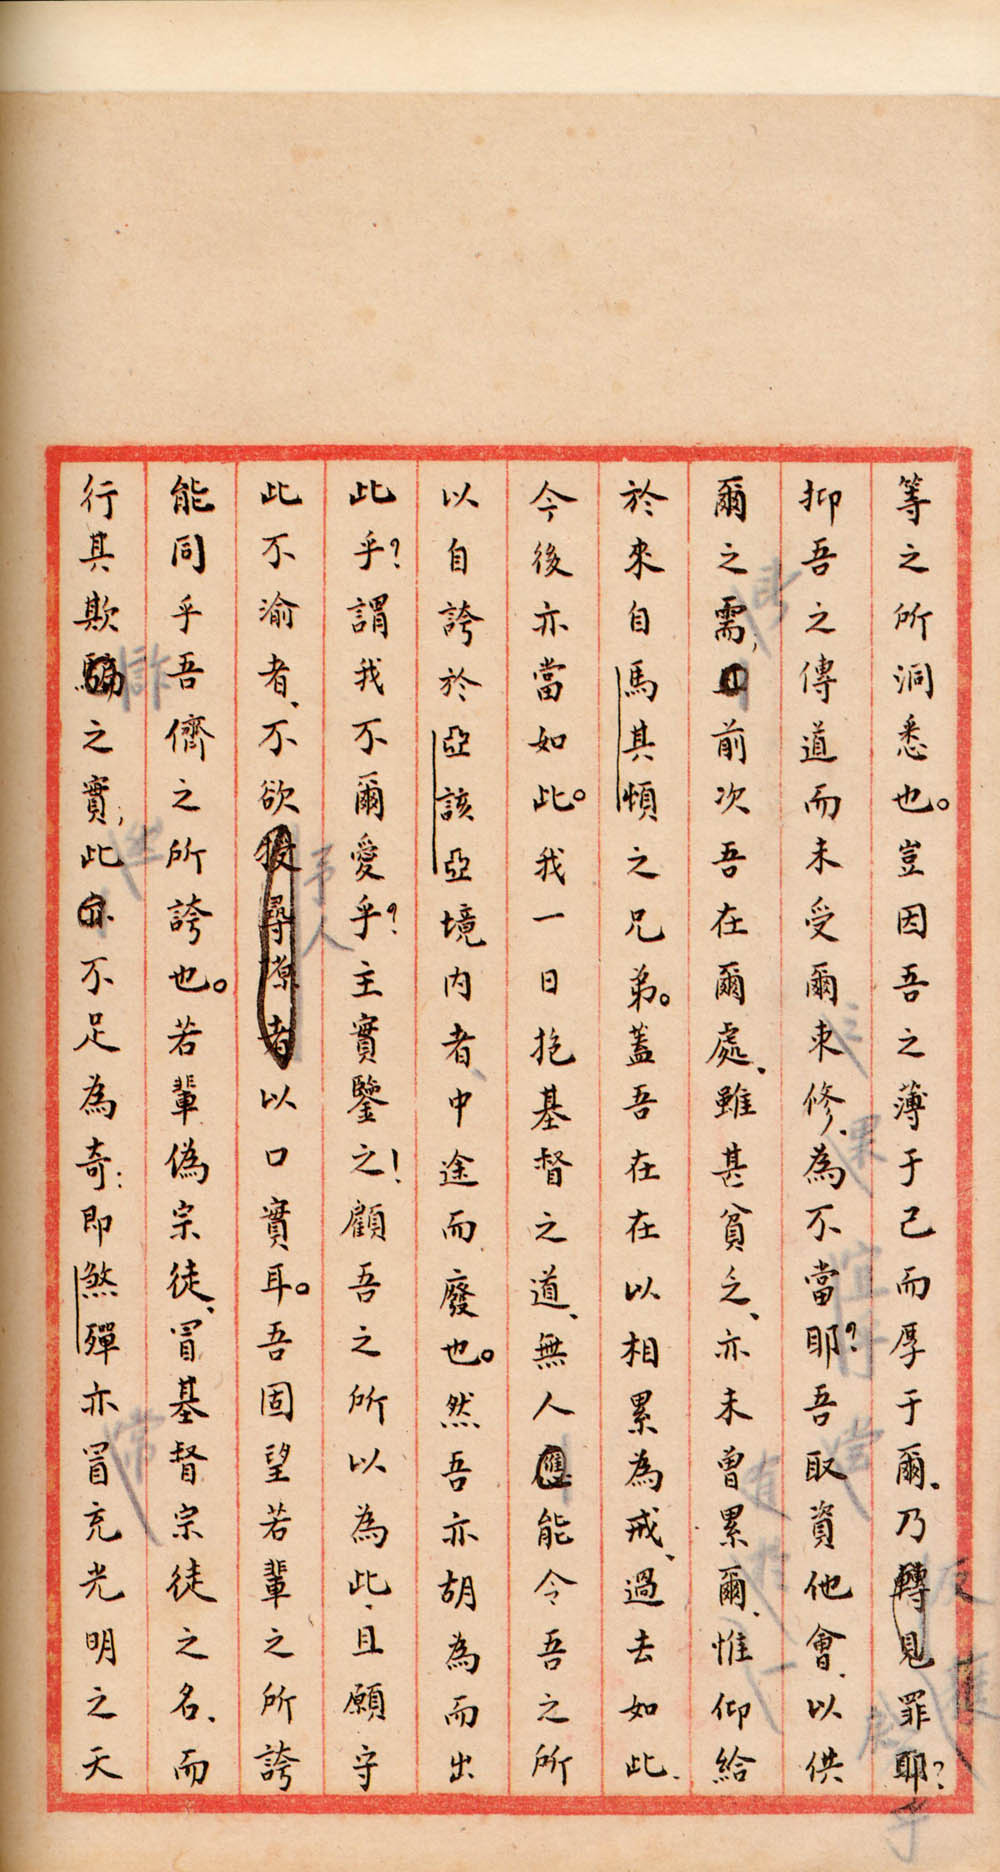 等之所洞悉也。豈因吾之薄于己而厚于爾、乃轉見罪耶?
抑吾之傳道而未受爾束修、為不當耶?吾取資他會、以供
爾之需、前次吾在爾處、雖甚貧乏、亦未曾累爾、惟仰給
於來自馬其頓之兄弟。蓋吾在在以相累為戒、過去如此、
今後亦當如此。我一日抱基督之道、無人能令吾之所
以自誇於亞該亞境内者、中途而廢也。然吾亦胡為而出
此乎?謂我不爾愛乎?主實鑒之!顧吾之所以為此、且願守
此不渝者、不欲授尋原者以口實耳。吾固望若輩之所誇
能同乎吾儕之所誇也。若輩偽宗徒、冒基督宗徒之名、而
行其欺騙之實;此亦不足為奇:即煞殫亦冒充光明之天
詐
弟人